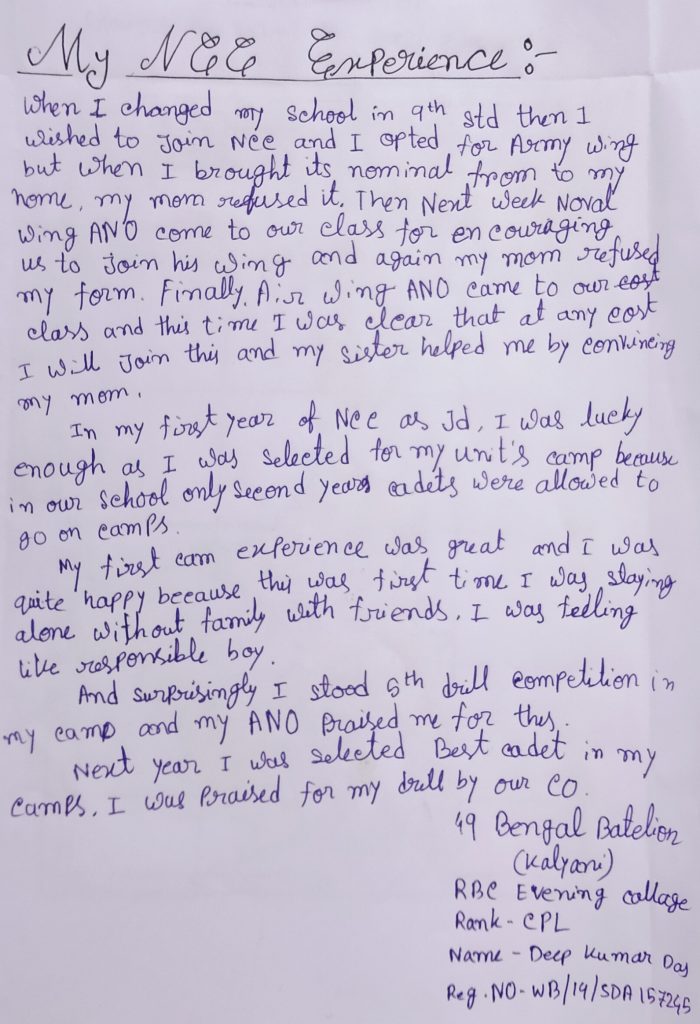 My NCC Experience :-
When I changed my school in 9th std then I
wished to Join Ncc and I opted for Army wing
but when I brought its nominal from to my
home, my mom refused it. Then Next week Noval
Wing ANO come to our class for encouraging
us to Join his wing and again my mom refused
my form. Finally, Air Wing ANO came to our cost
class and this time I was clear that at any cost
I will Join this and my sister helped me by convincing
my mom.
In my first year of Ncc as Jd, I was lucky
enough as I was selected for my unit's camp because
in our school only second years cadets were allowed to
go on camps.
My first cam experience was great and I was
quite happy because this was first time I was staying
alone without family with friends. I was feeling
like responsible boy.
And surprisingly I stood 5th drill competition in
my camp and my ANO Praised me for this.
Next year I was selected Best cadet in my
camps. I was Praised for my drill by our CO.
49 Bengal Batelion
(Kalyani)
RBC Evening collage
Rank - CPL
Name - Deep Kumar Das
Reg. NO - WB/19/SDA 157245